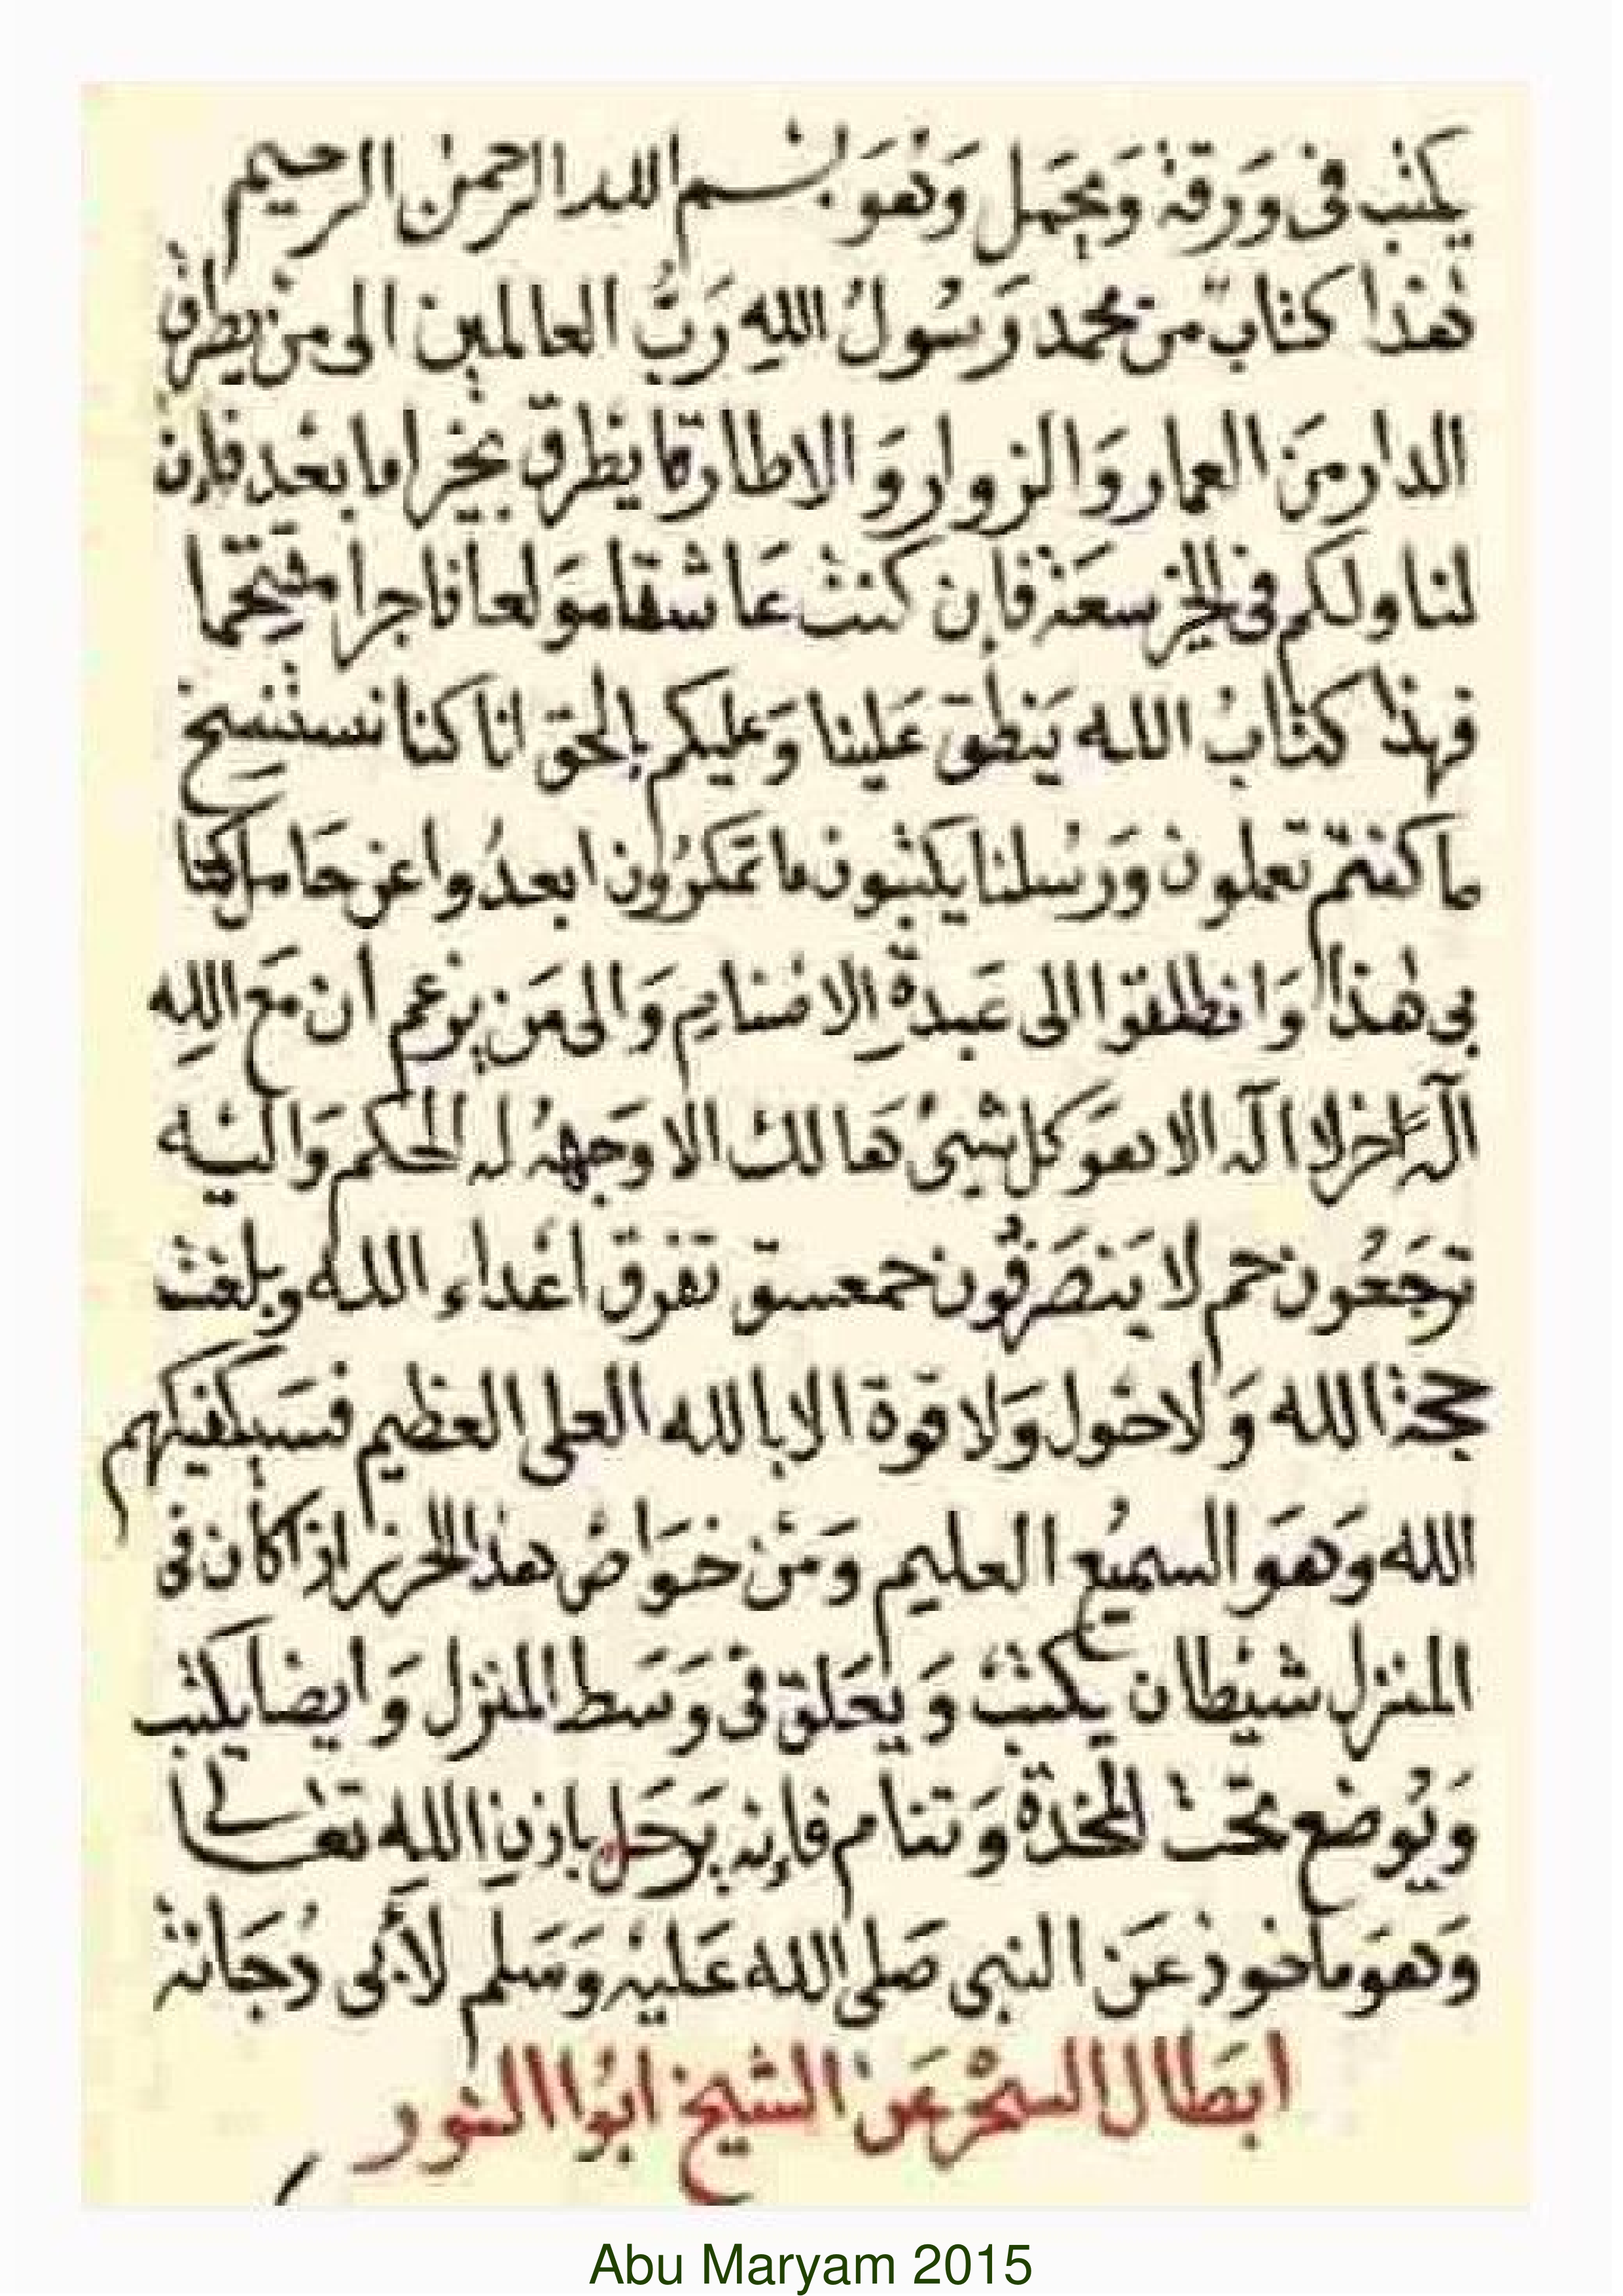 يكتب فى وَرَقة وَيحمَل وَهُوَ بسم الله الرحمن الرحيم
هٰذا كتابٌ من محمد رَسُولُ اللهِ رَبُّ العالمين الى من يطرق
الدار مِنَ العمار وَالزوار وَ الاطارقا يطرق بخير اما بعْد فإن
لنا ولكم فى الخير سعَة فإن كنت عَاشقا موَلعا فاجرا مقتحما
فهذا كتابُ الله يَنطق عَلينا وَعليكم بالحق انا كنا نستنسخ
ما كنتم تعملون وَرُسلنا يكتبون ما تمَكرُون ابعدُوا عن حَامل كتا
بى هٰذا وَانطلقوا الى عَبدةِ الاصنام وَالى مَن يزعم ان مَع اللهِ
آلهَا اخر لا آله الا هوَ كل شيئ هَالك الا وَجههُ له الحكم وَاليْه
ترجَعُون حم لا يَنصَرفُون حمعسق تفرق اعْداء الله وبلغت
حجة الله وَلا حَول وَلا قوة الا بالله العلى العظيم فسَيكفيكهم
الله وَهوَ السميُع العليم وَمن خوَاص هذا الحرز اذا كان فى
المنزل شيْطان يكتب وَيعَلق فى وَسَط المنزل وَايضا يكتب
وَيُوضع تحت المخدة وَتنام فإنه يَرحَل بإذنِ الله تعالى
وَهوَ ماخوذ عَن النبى صَلى الله عَليْه وَسَلم لأبى دُجَانة
ابطَال السحْر عَن الشيخ ابُوا النور
Abu Maryam 2015